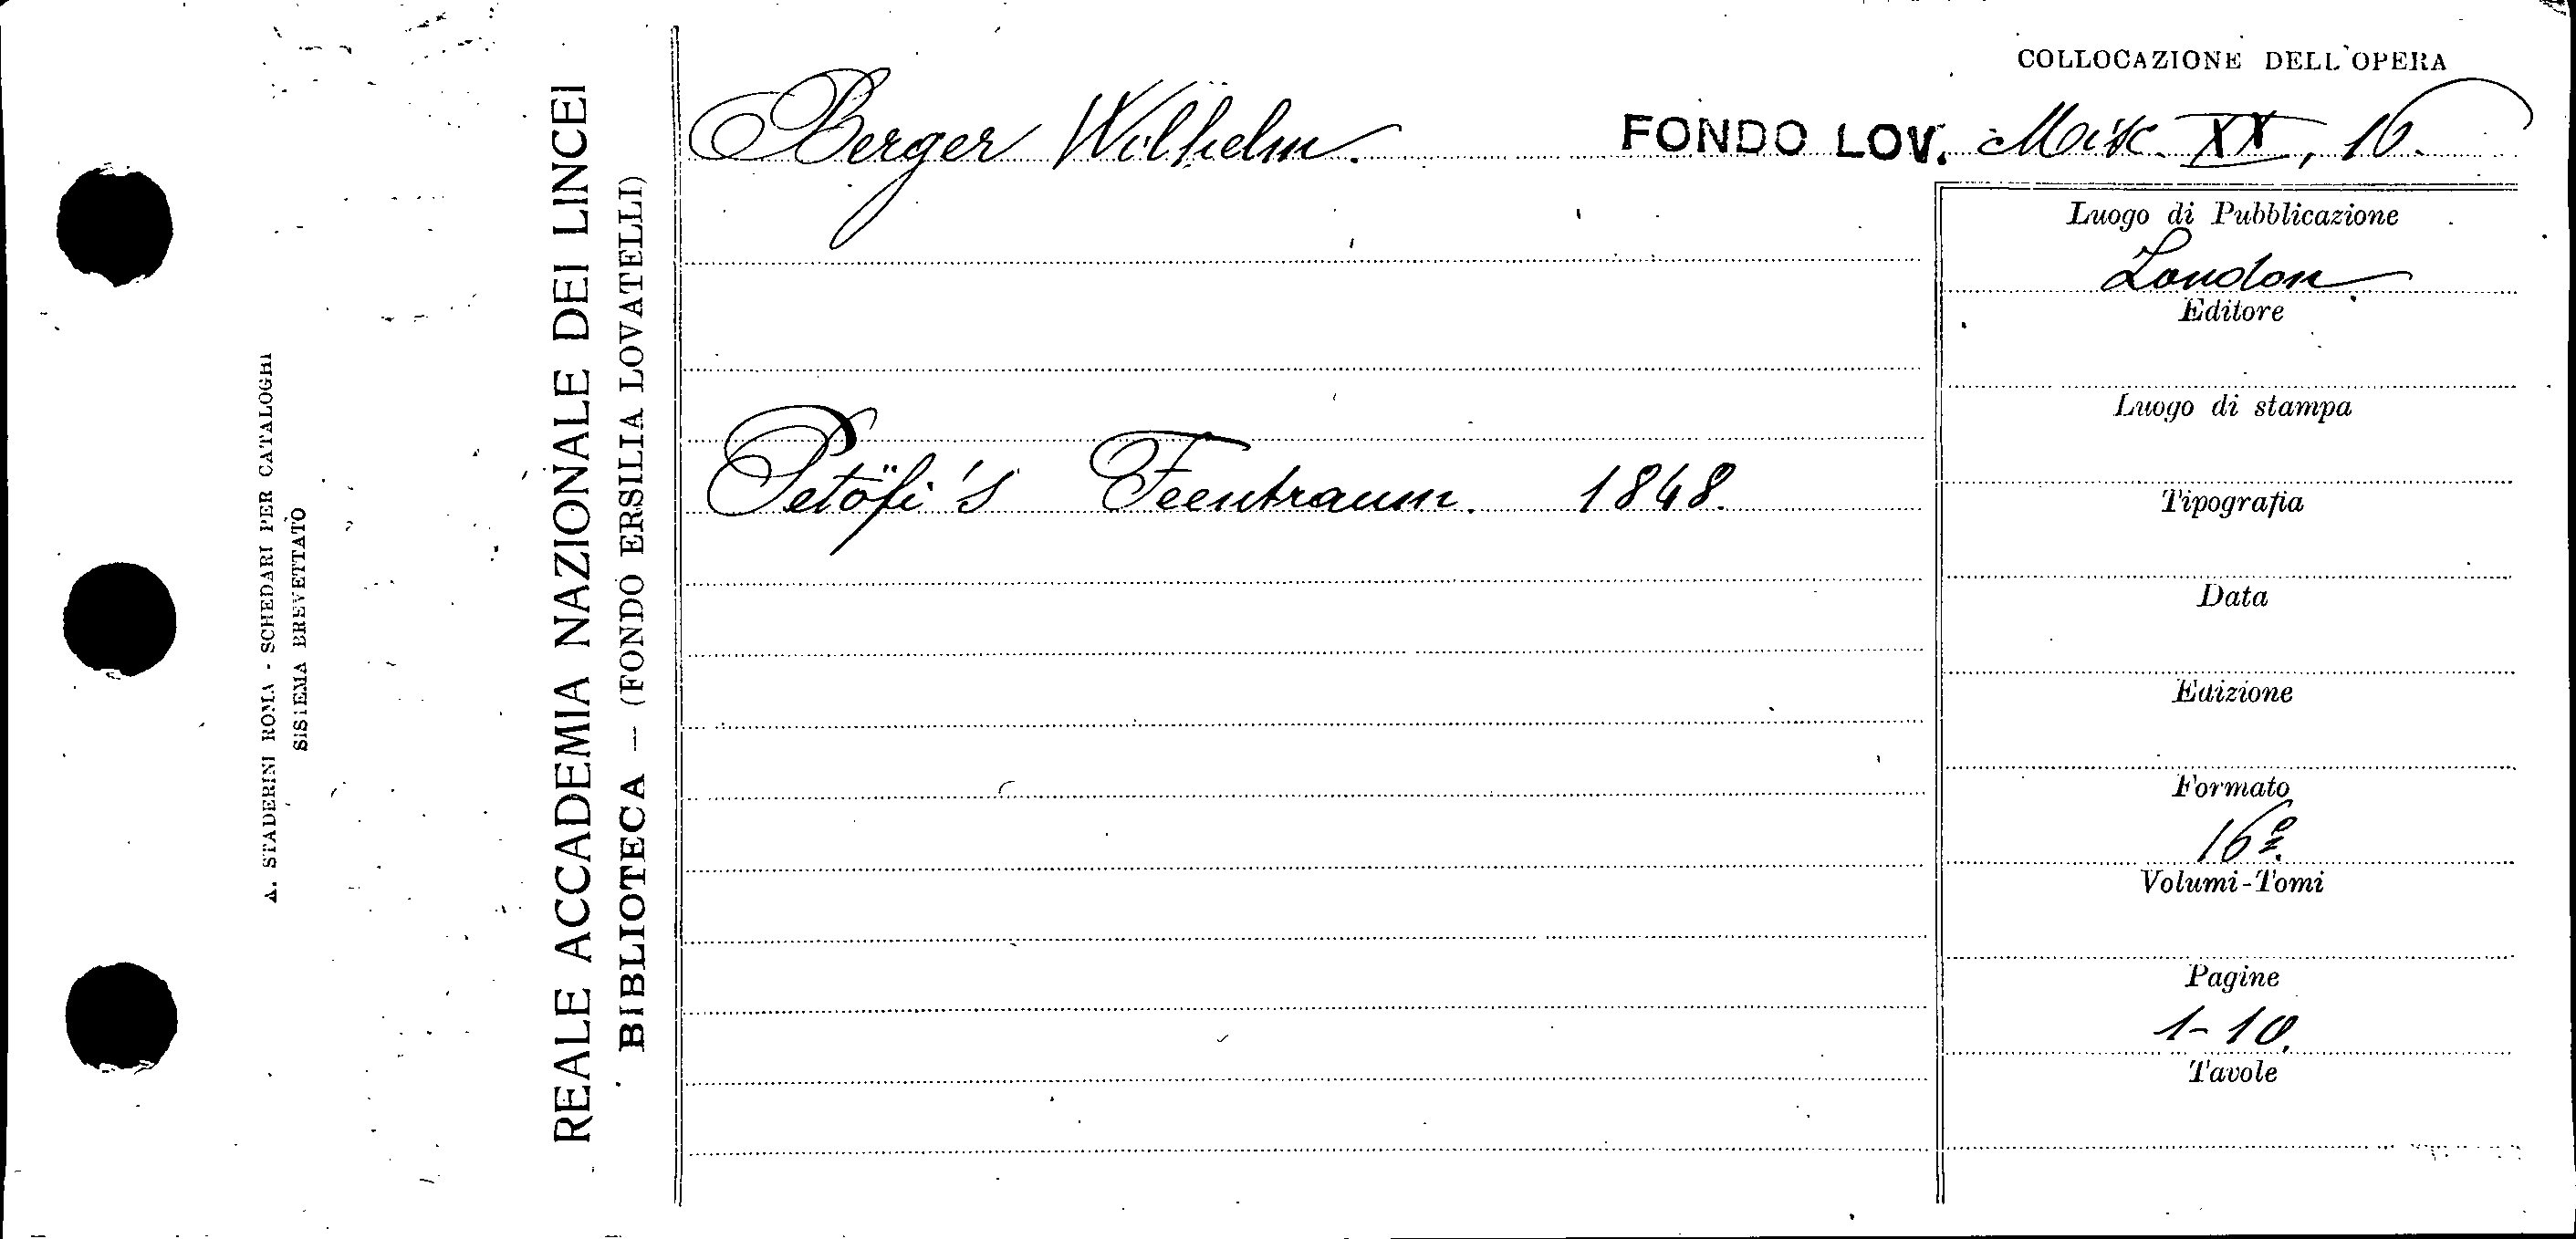 COLLOCAZIONE DELL'OPERA
Berger Wilhelm. FONDO LOV. Misc. XX, 16.
Luogo di Pubblicazione
London
Editore
Luogo di stampa
Petöfi's Feentraum. 1848.
Tipografia
Data
Edizione
Formato
16º
Volumi-Tomi
Pagine
1-10.
Tavole
REALE ACCADEMIA NAZIONALE DEI LINCEI
BIBLIOTECA — (FONDO ERSILIA LOVATELLI)
A. STADERINI ROMA - SCHEDARI PER CATALOGHI
SISTEMA BREVETTATO